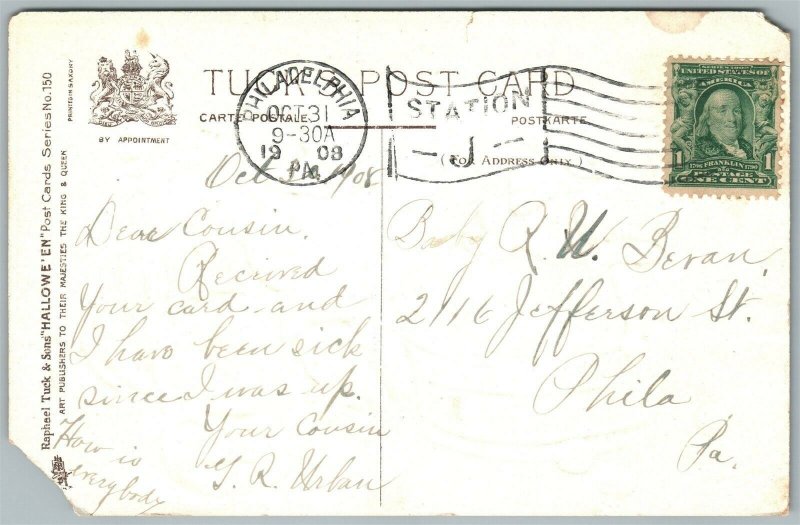 Raphael Tuck & Sons' "HALLOWE'EN" Post Cards Series No. 150
ART PUBLISHERS TO THEIR MAJESTIES THE KING & QUEEN
PRINTED IN SAXONY
BY APPOINTMENT
TUCK POST CARD
CARTE POSTALE
POSTKARTE
(For Address Only)
PHILADELPHIA
OCT 31
9-30A
1908
PA.
STATION
J
UNITED STATES OF
1 FRANKLIN 1
POSTAGE
ONE CENT
Oct 1908
Dear Cousin.
Received
Your card and
I have been sick
since I was up.
Your Cousin
G. R. Urban
How is
everybody
Baby R. W. Bevan,
2116 Jefferson St.
Phila
Pa.